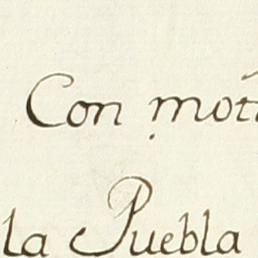 Con mot
la Puebla